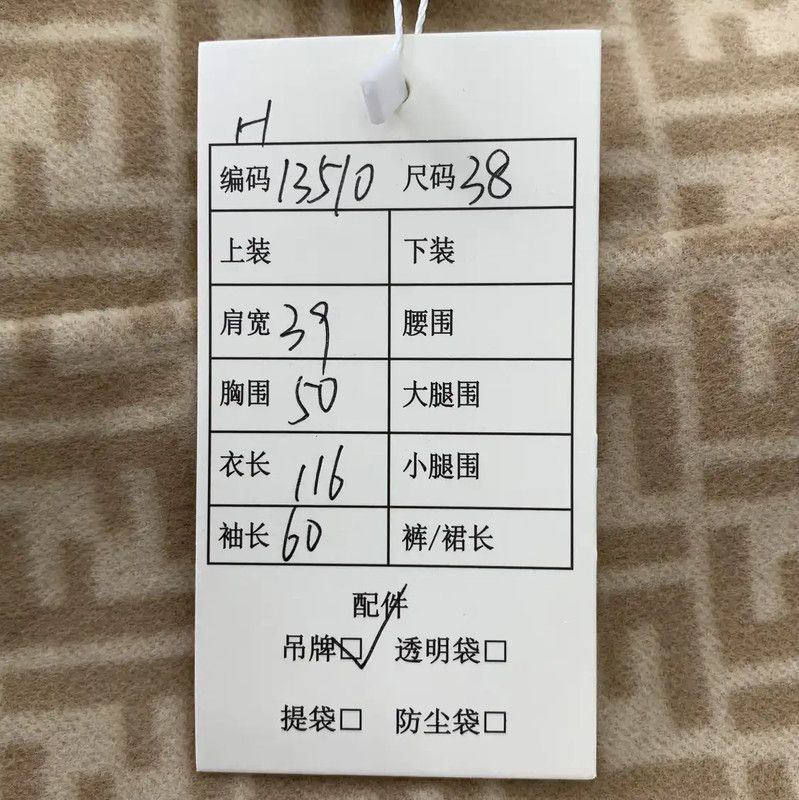 H
编码 13510 尺码 38
上装 下装
肩宽 39 腰围
胸围 50 大腿围
衣长 116 小腿围
袖长 60 裤/裙长
配件
吊牌☑ 透明袋□
提袋□ 防尘袋□